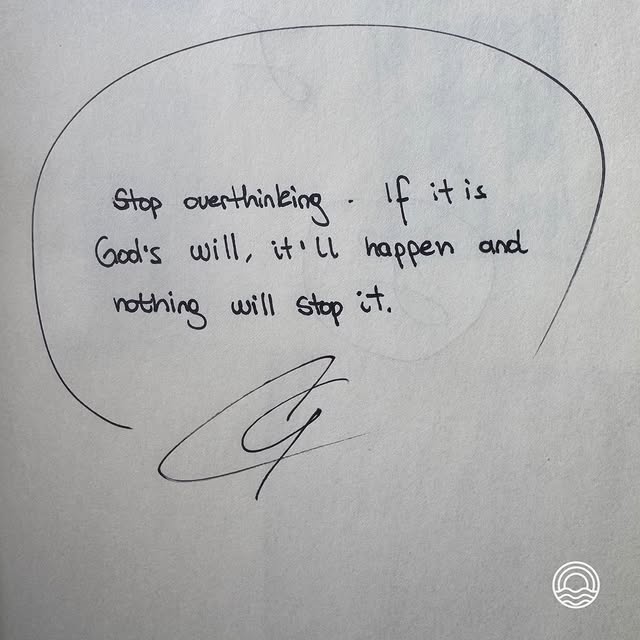 Stop overthinking. If it is
God's will, it'll happen and
nothing will stop it.